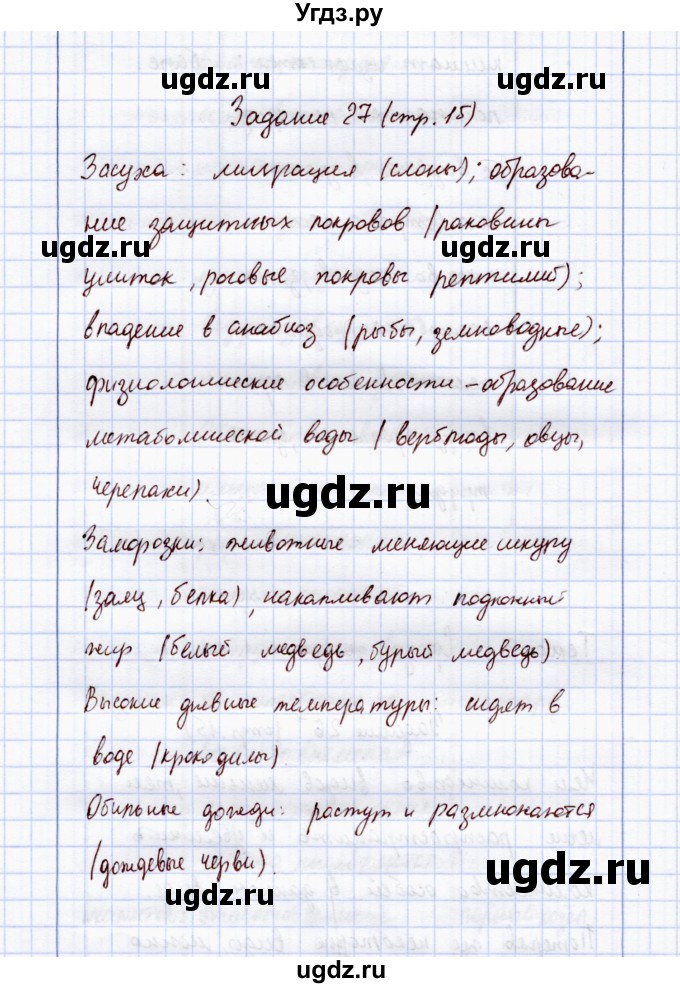 Угдз.ру
ugdz.ru ugdz.ru
Задание 27 (стр. 15)
Засуха: миграция (слоны); образова-
ние защитных покровов (раковины
ugdz.ru ugdz.ru
улиток, роговые покровы рептилий);
впадение в анабиоз (рыбы, земноводные);
физиологические особенности – образование
метаболической воды (верблюды, овцы,
черепахи).
ugdz.ru
Заморозки: животные меняющие шкуру
(заяц, белка), накапливают подкожный
жир (белый медведь, бурый медведь)
Высокие дневные температуры: сидят в
воде (крокодилы).
Обильные дожди: растут и размножаются
(дождевые черви).
ugdz.ru
ugdz.ru
ugdz.ru